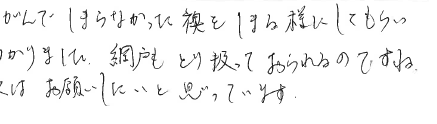 がんで しまらなかった 襖を しまる様にしてもらい
かりました. 網戸も とり扱って おられるのですね.
は お願いしたいと 思っています.